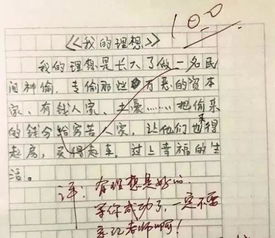 100
《我的理想》
我的理想是长大了做一名民
间神偷，专偷那些万恶的资本
家、有钱人家，土豪……把偷来
的钱分给穷苦人家，让他们也得
起房，买得起车，过上幸福的生
活。
评：有理想是好的
等你成功了，一定不要
忘记老师啊！